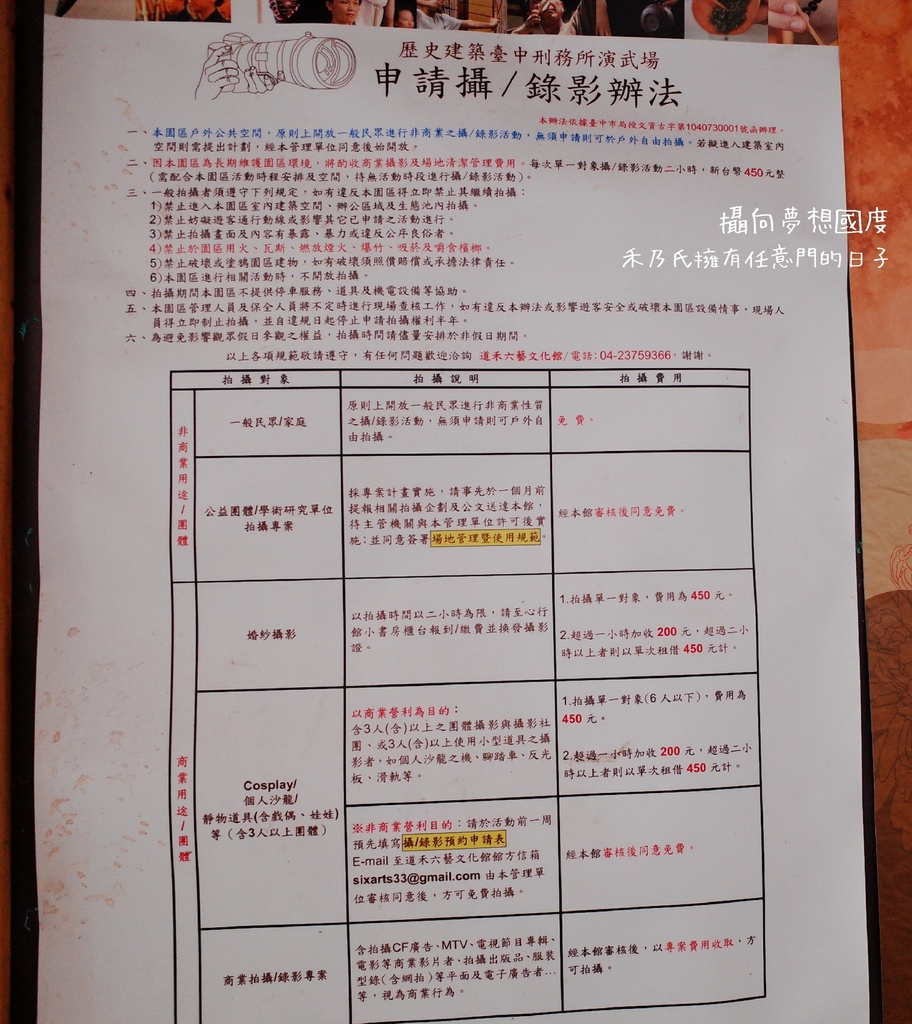 歷史建築臺中刑務所演武場
申請攝/錄影辦法
本辦法依據臺中市局授文資古字第1040730001號函辦理。
一、本園區戶外公共空間，原則上開放一般民眾進行非商業之攝/錄影活動，無須申請則可於戶外自由拍攝。若擬進入建築室內
空間則需提出計劃，經本管理單位同意後始開放。
二、因本園區為長期維護園區環境，將酌收商業攝影及場地清潔管理費用。每次單一對象攝/錄影活動二小時，新台幣450元整
（需配合本園區活動時程安排及空間，待無活動時段進行攝/錄影活動）。
三、一般拍攝者須遵守下列規定，如有違反本園區得立即禁止其繼續拍攝：
1)禁止進入本園區室內建築空間、辦公區域及生態池內拍攝。
2)禁止妨礙遊客通行動線或影響其它已申請之活動進行。
3)禁止拍攝畫面及內容有暴露、暴力或違反公序良俗者。
4)禁止於園區用火、瓦斯、燃放煙火、爆竹、吸菸及嚼食檳榔。
5)禁止破壞或塗鴉園區建物，如有破壞須照價賠償或承擔法律責任。
6)本園區進行相關活動時，不開放拍攝。
四、拍攝期間本園區不提供停車服務、道具及機電設備等協助。
五、本園區管理人員及保全人員將不定時進行現場查核工作，如有違反本辦法或影響遊客安全或破壞本園區設備情事，現場人
員得立即制止拍攝，並自違規日起停止申請拍攝權利半年。
六、為避免影響觀眾假日參觀之權益，拍攝時間請儘量安排於非假日期間。
以上各項規範敬請遵守，有任何問題歡迎洽詢 道禾六藝文化館/電話：04-23759366，謝謝。
攝向夢想國度
禾乃氏擁有任意門的日子
拍攝對象 拍攝說明 拍攝費用
非商業用途/團體
一般民眾/家庭
原則上開放一般民眾進行非商業性質
之攝/錄影活動，無須申請則可戶外自
由拍攝。
免費。
公益團體/學術研究單位
拍攝專案
採專案計畫實施，請事先於一個月前
提報相關拍攝企劃及公文送達本館，
待主管機關與本管理單位許可後實
施；並同意簽署場地管理暨使用規範。
經本館審核後同意免費。
商業用途/團體
婚紗攝影
以拍攝時間以二小時為限，請至心行
館小書房櫃台報到/繳費並換發攝影
證。
1.拍攝單一對象，費用為 450 元。
2.超過一小時加收 200 元，超過二小
時以上者則以單次租借 450 元計。
Cosplay/
個人沙龍/
靜物道具(含戲偶、娃娃)
等（含3人以上團體）
以商業營利為目的：
含3人(含)以上之團體攝影與攝影社
團、或3人(含)以上使用小型道具之攝
影者，如個人沙龍之機、腳踏車、反光
板、滑軌等。
1.拍攝單一對象(6 人以下)，費用為
450 元。
2.超過一小時加收 200 元，超過二小
時以上者則以單次租借 450 元計。
※非商業營利目的：請於活動前一周
預先填寫攝/錄影預約申請表
E-mail 至道禾六藝文化館館方信箱
sixarts33@gmail.com 由本管理單
位審核同意後，方可免費拍攝。
經本館審核後同意免費。
商業拍攝/錄影專案
含拍攝CF廣告、MTV、電視節目專輯、
電影等商業影片者、拍攝出版品、服裝
型錄(含網拍)等平面及電子廣告者…
等，視為商業行為。
經本館審核後，以專案費用收取，方
可拍攝。